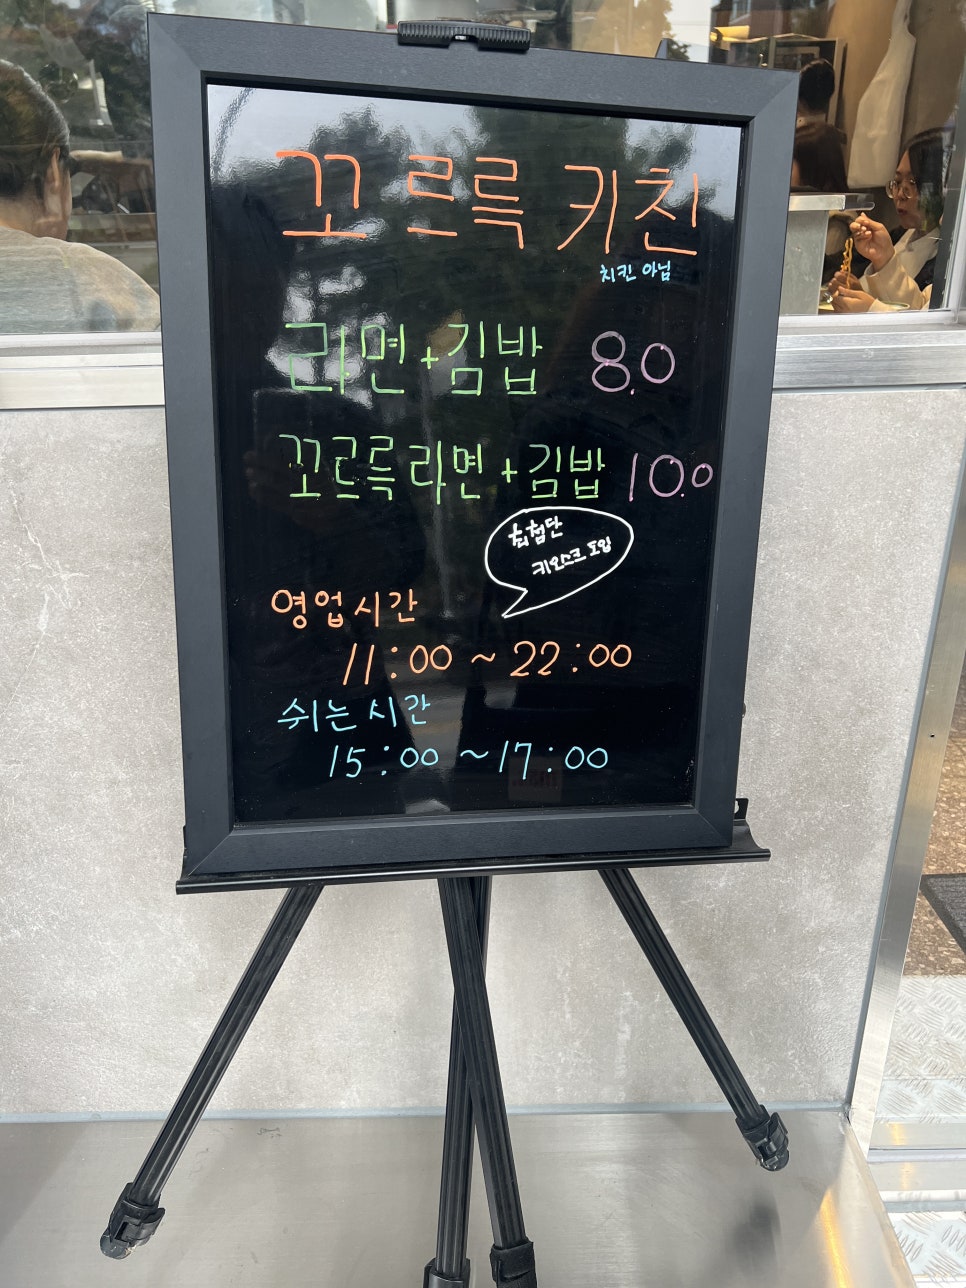 꼬르륵 키친
치킨 아님
라면+김밥 8.0
꼬르륵라면+김밥 10.0
최첨단
키오스크 도입
영업시간
11:00~22:00
쉬는시간
15:00~17:00